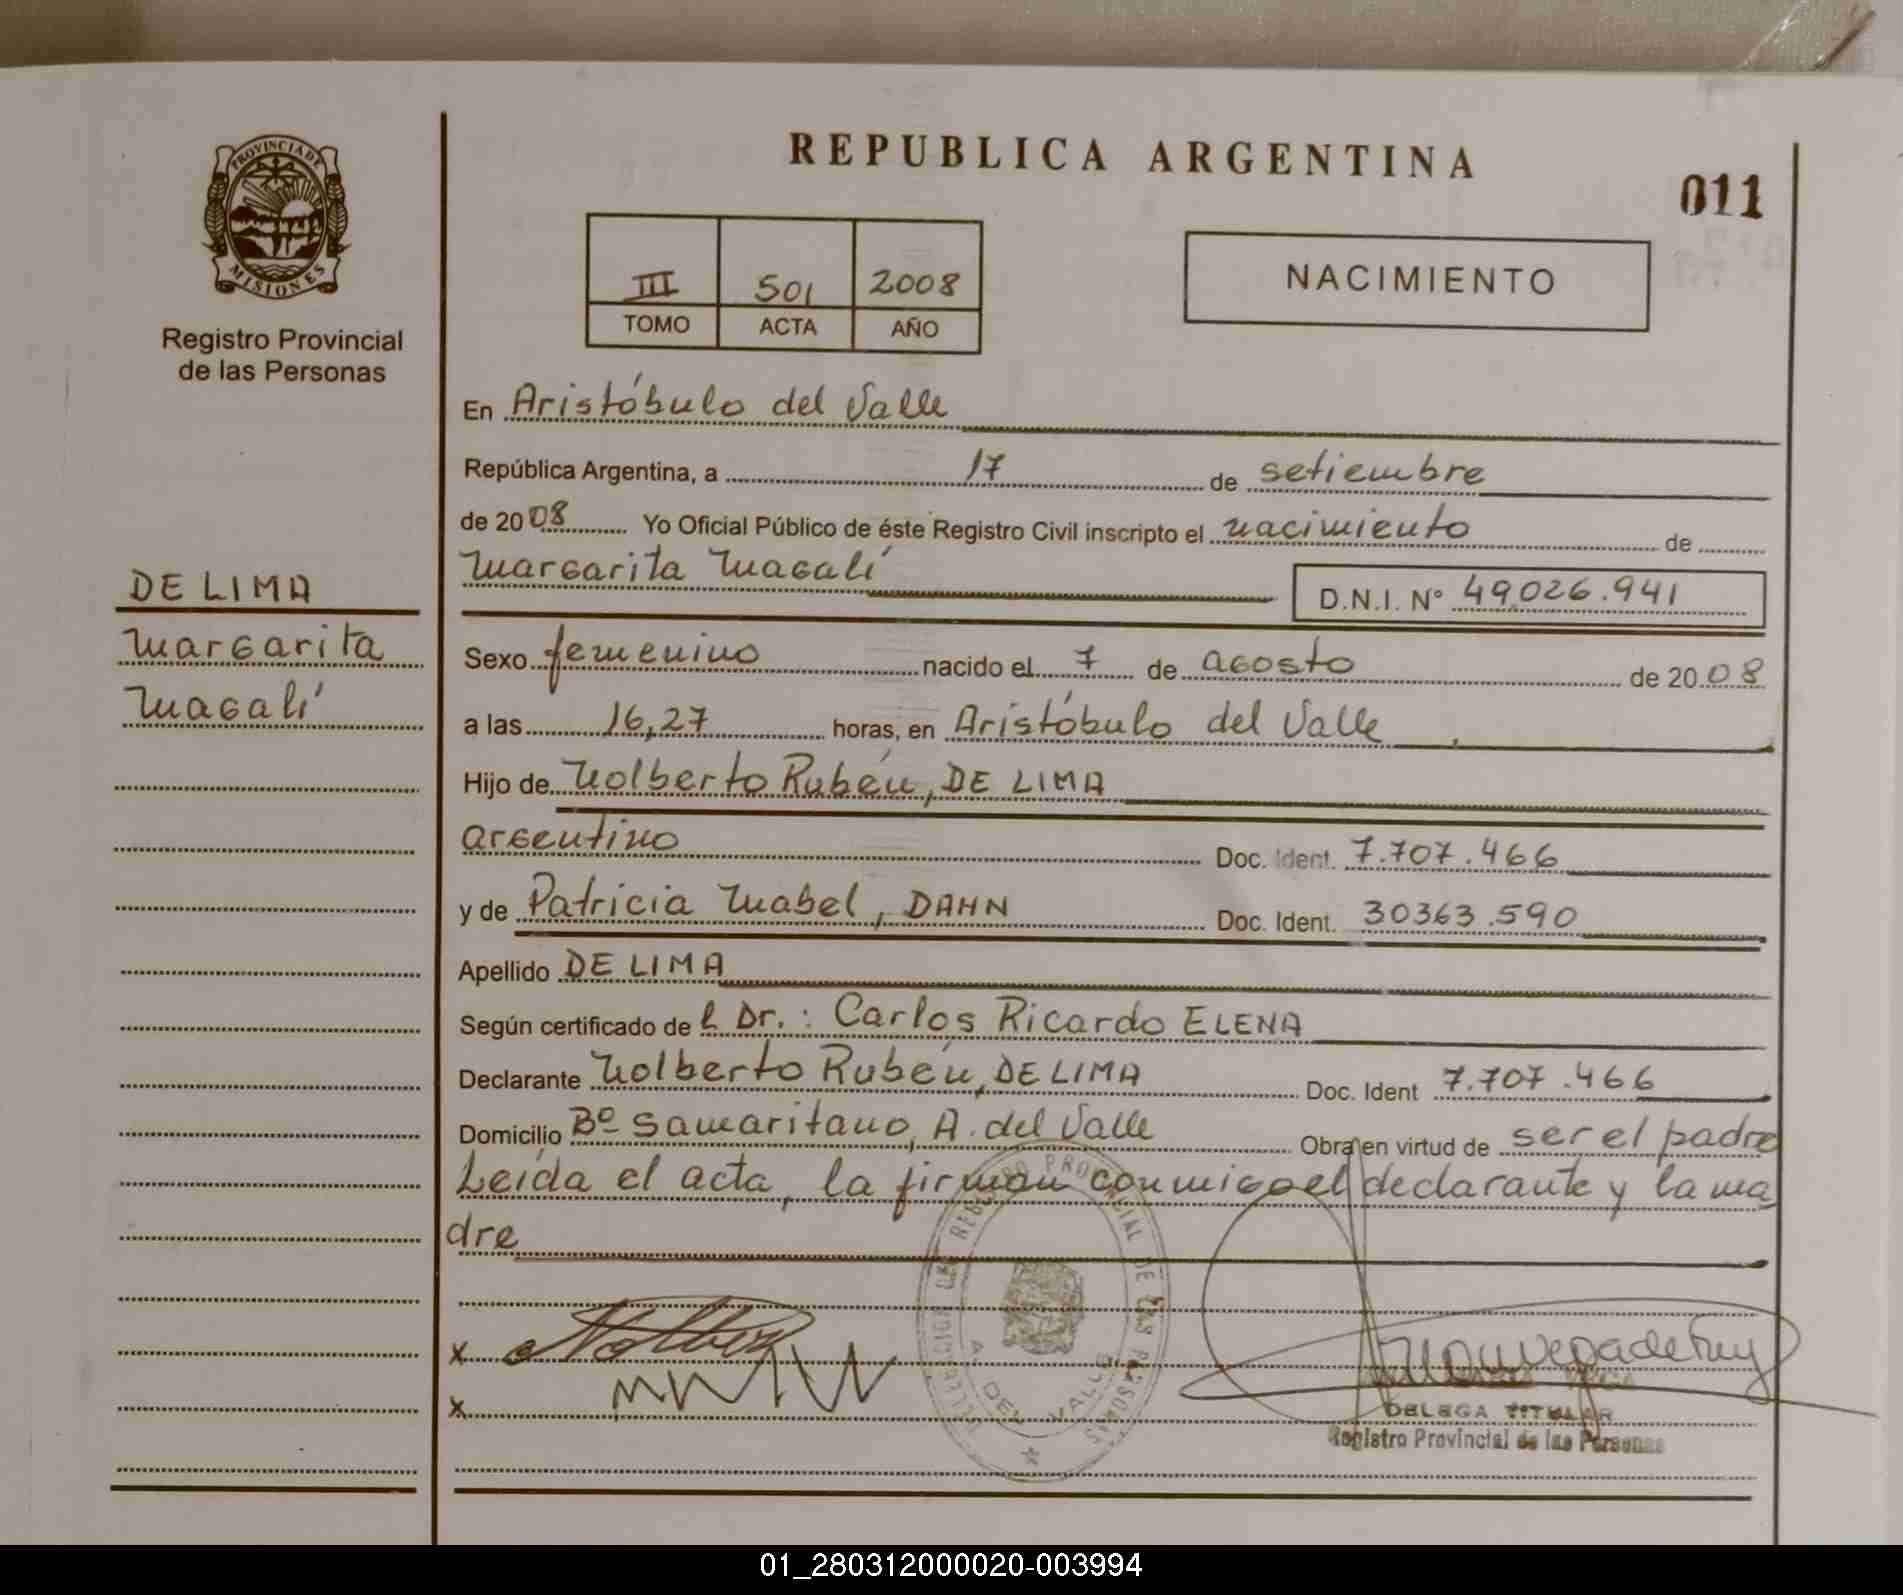 REPUBLICA ARGENTINA
011
PROVINCIA DE
MISIONES
Registro Provincial
de las Personas
III 501 2008
TOMO ACTA AÑO
NACIMIENTO
En Aristóbulo del Valle
República Argentina, a 17 de setiembre
de 2008 Yo Oficial Público de éste Registro Civil inscripto el nacimiento de
Margarita Magalí D.N.I. Nº 49.026.941
DE LIMA
Margarita
Magalí
Sexo femenino nacido el 7 de agosto de 2008
a las 16,27 horas, en Aristóbulo del Valle
Hijo de Nolberto Rubén, DE LIMA
argentino Doc. Ident. 7.707.466
y de Patricia Mabel, DAHN Doc. Ident. 30363.590
Apellido DE LIMA
Según certificado de l Dr.: Carlos Ricardo ELENA
Declarante Nolberto Rubén, DE LIMA Doc. Ident 7.707.466
Domicilio Bº Samaritano, A. del Valle Obra en virtud de ser el padre
Leída el acta, la firman conmigo el declarante y la ma
dre
REGISTRO PROVINCIAL DE LAS PERSONAS
A. DEL VALLE
x
x
DELEGA TITULAR
Registro Provincial de las Personas
01_280312000020-003994